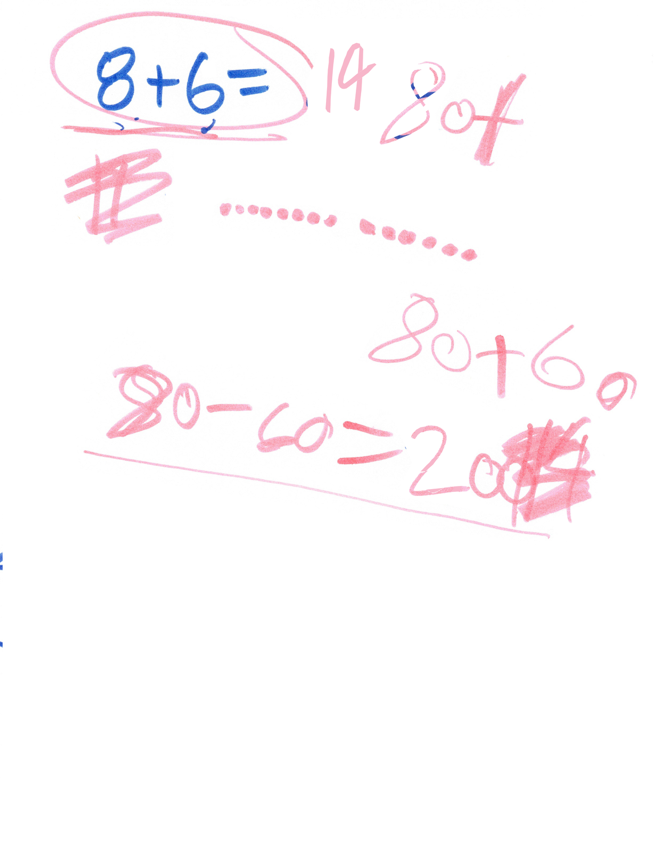 8+6= 14 80+
80+60
80-60=200